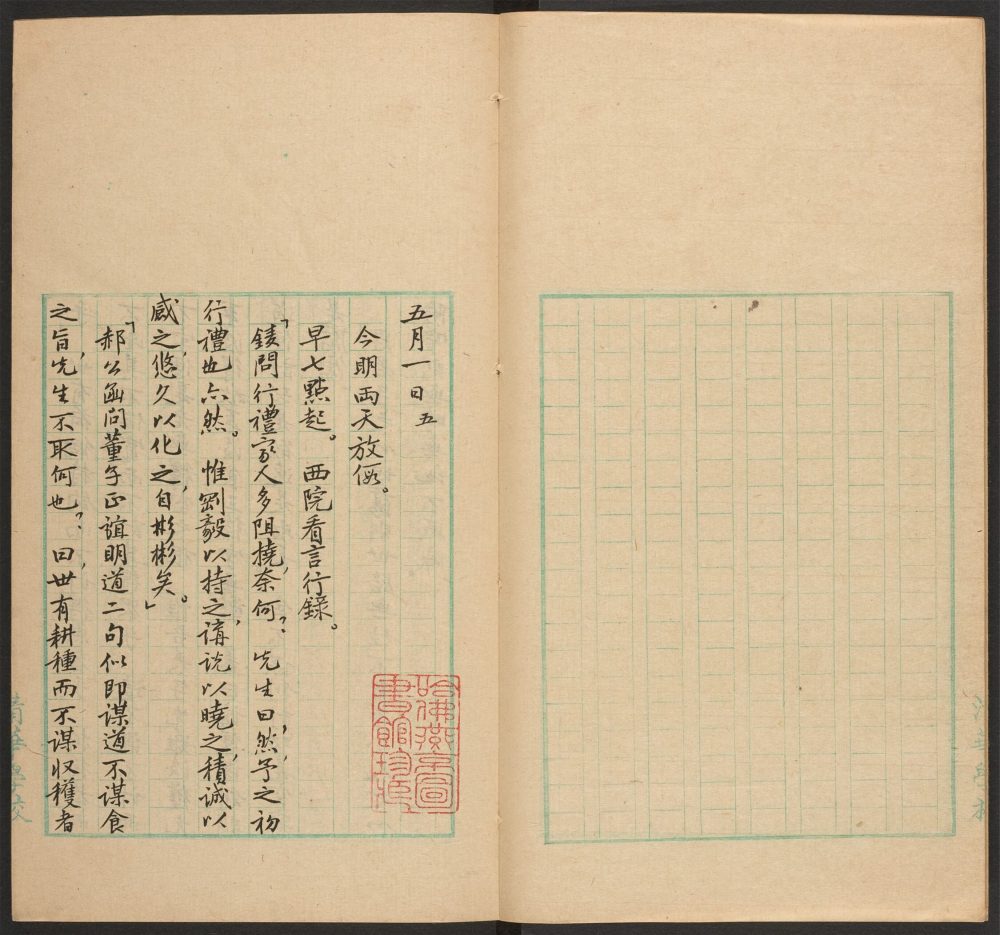 五月一日 五
今明兩天放假。
早七點起。西院看言行錄。
「錂問行禮家人多阻撓,奈何?」先生曰,然,予之初
行禮也亦然。惟剛毅以持之,講說以曉之,積誠以
感之,悠久以化之,自彬彬矣。」
「郝公函問董子正誼明道二句似即謀道不謀食
之旨,先生不取何也?曰,世有耕種而不謀收穫者
哈佛燕京圖書館珍藏
清華學校